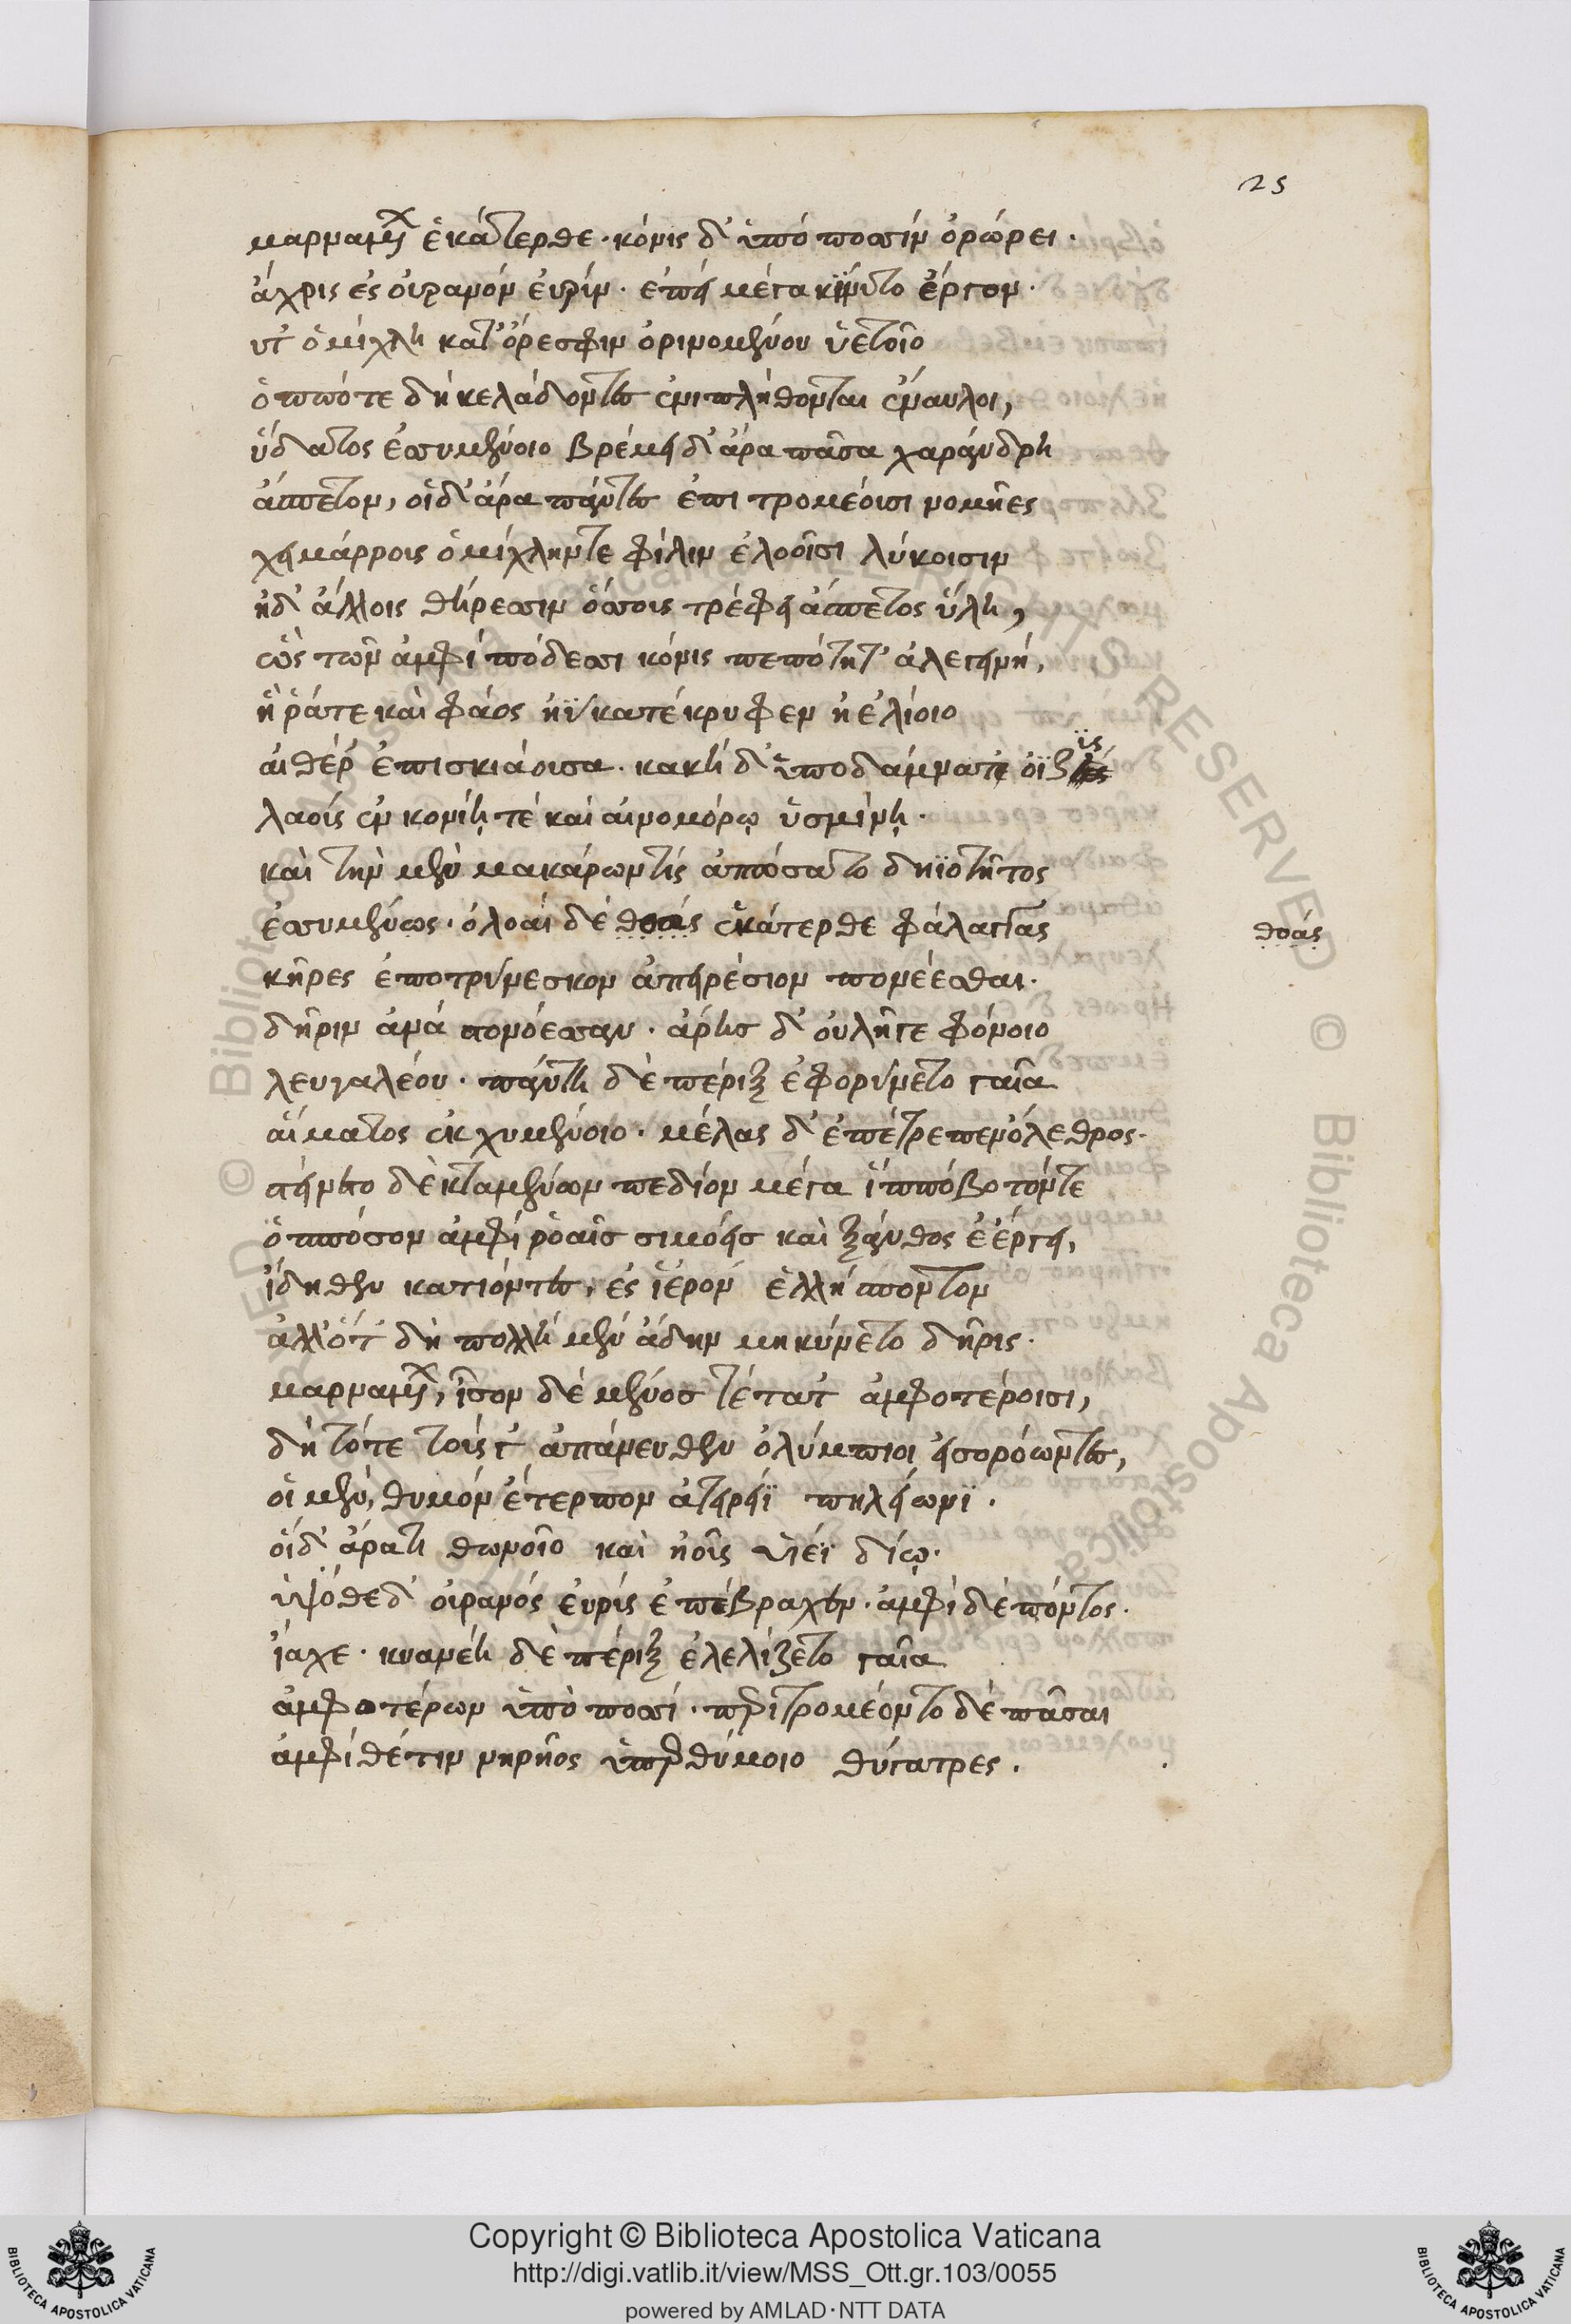 25
μαρναμένων ἑκάτερθε· κόνις δ' ὑπὸ ποσσὶν ὀρώρει·
ἄχρις ἐς οὐρανὸν εὐρύν· ἐπεὶ μέγα κίνυτο ἔργον·
ἠύτ' ὀμίχλη κατ' ὄρεσφιν ὀρινομένου ὑετοῖο
ὁππότε δὴ κελάδοντες ἐνιπλήθονται ἔναυλοι,
ὕδατος ἐσσυμένοιο βρέμει δ' ἄρα πᾶσα χαράνδρη
ἄσπετον, οἱ δ' ἄρα πάντες ἐπιτρομέουσι νομῆες
χειμάρρους ὀμίχλην τε φίλην ὀλοοῖσι λύκοισιν
ἠδ' ἄλλοις θήρεσσιν ὅσσους τρέφει ἄσπετος ὕλη,
ὣς τῶν ἀμφὶ πόδεσσι κόνις πεπότητ' ἀλεγεινή,
ἥ ῥά τε καὶ φάος ἠῢ κατέκρυφεν ἠελίοιο
αἰθέρ' ἐπισκιάουσα· κακὴ δ' ὑπεδάμνατ' ὀϊζὺς
ϊς
λαοὺς ἐν κονίῃ τε καὶ αἰνομόρῳ ὑσμίνῃ·
καὶ τὴν μὲν μακάρων τὶς ἀπώσατο δηϊοτῆτος
ἐσσυμένως· ὀλοαὶ δὲ θοὰς ἑκάτερθε φάλαγγας
θοάς
κῆρες ἐποτρύνεσκον ἀπειρέσιον πονέεσθαι·
δῆριν ἀνὰ στονόεσσαν· ἄρης δ' οὐ λῆγε φόνοιο
λευγαλέου· πάντη δὲ πέριξ ἐφορύνετο γαῖα
αἵματος ἐκχυμένοιο· μέλας δ' ἐπετέρπετ' ὄλεθρος·
στείνετο δὲ κταμένων πεδίον μέγα ἱππόβοτόν τε
ὁππόσον ἀμφὶ ῥοαῖς σιμόεις καὶ ξάνθος ἐέργει,
ἴδηθεν κατιόντες, ἐς ἱερὸν ἑλλήσποντον
ἀλλ' ὅτ' δὴ πολλὴ μὲν ἄδην μηκύνετο δῆρις·
μαρναμένων, ἶσον δὲ μένος τέτατ' ἀμφοτέροισι,
δὴ τότε τούς γ' ἀπάνευθεν ὀλύμπιοι εἰσορόωντες,
οἱ μὲν, θυμὸν ἔτερπον ἀτειρέϊ πηλείωνι·
οἱ δ' ἄρα τιθωνοῖο καὶ ἠοῦς υἱέϊ δίῳ·
ὑψόθε δ' οὐρανὸς εὐρὺς ἐπέβραχεν· ἀμφὶ δὲ πόντος·
ἴαχε· κυανέη δὲ πέριξ ἐλελίζετο γαῖα
ἀμφοτέρων ὑπὸ ποσσί· περιτρομέοντο δὲ πᾶσαι
ἀμφὶ θέτιν νηρῆος ὑπερθύμοιο θύγατρες·
Copyright © Biblioteca Apostolica Vaticana
http://digi.vatlib.it/view/MSS_Ott.gr.103/0055
powered by AMLAD·NTT DATA